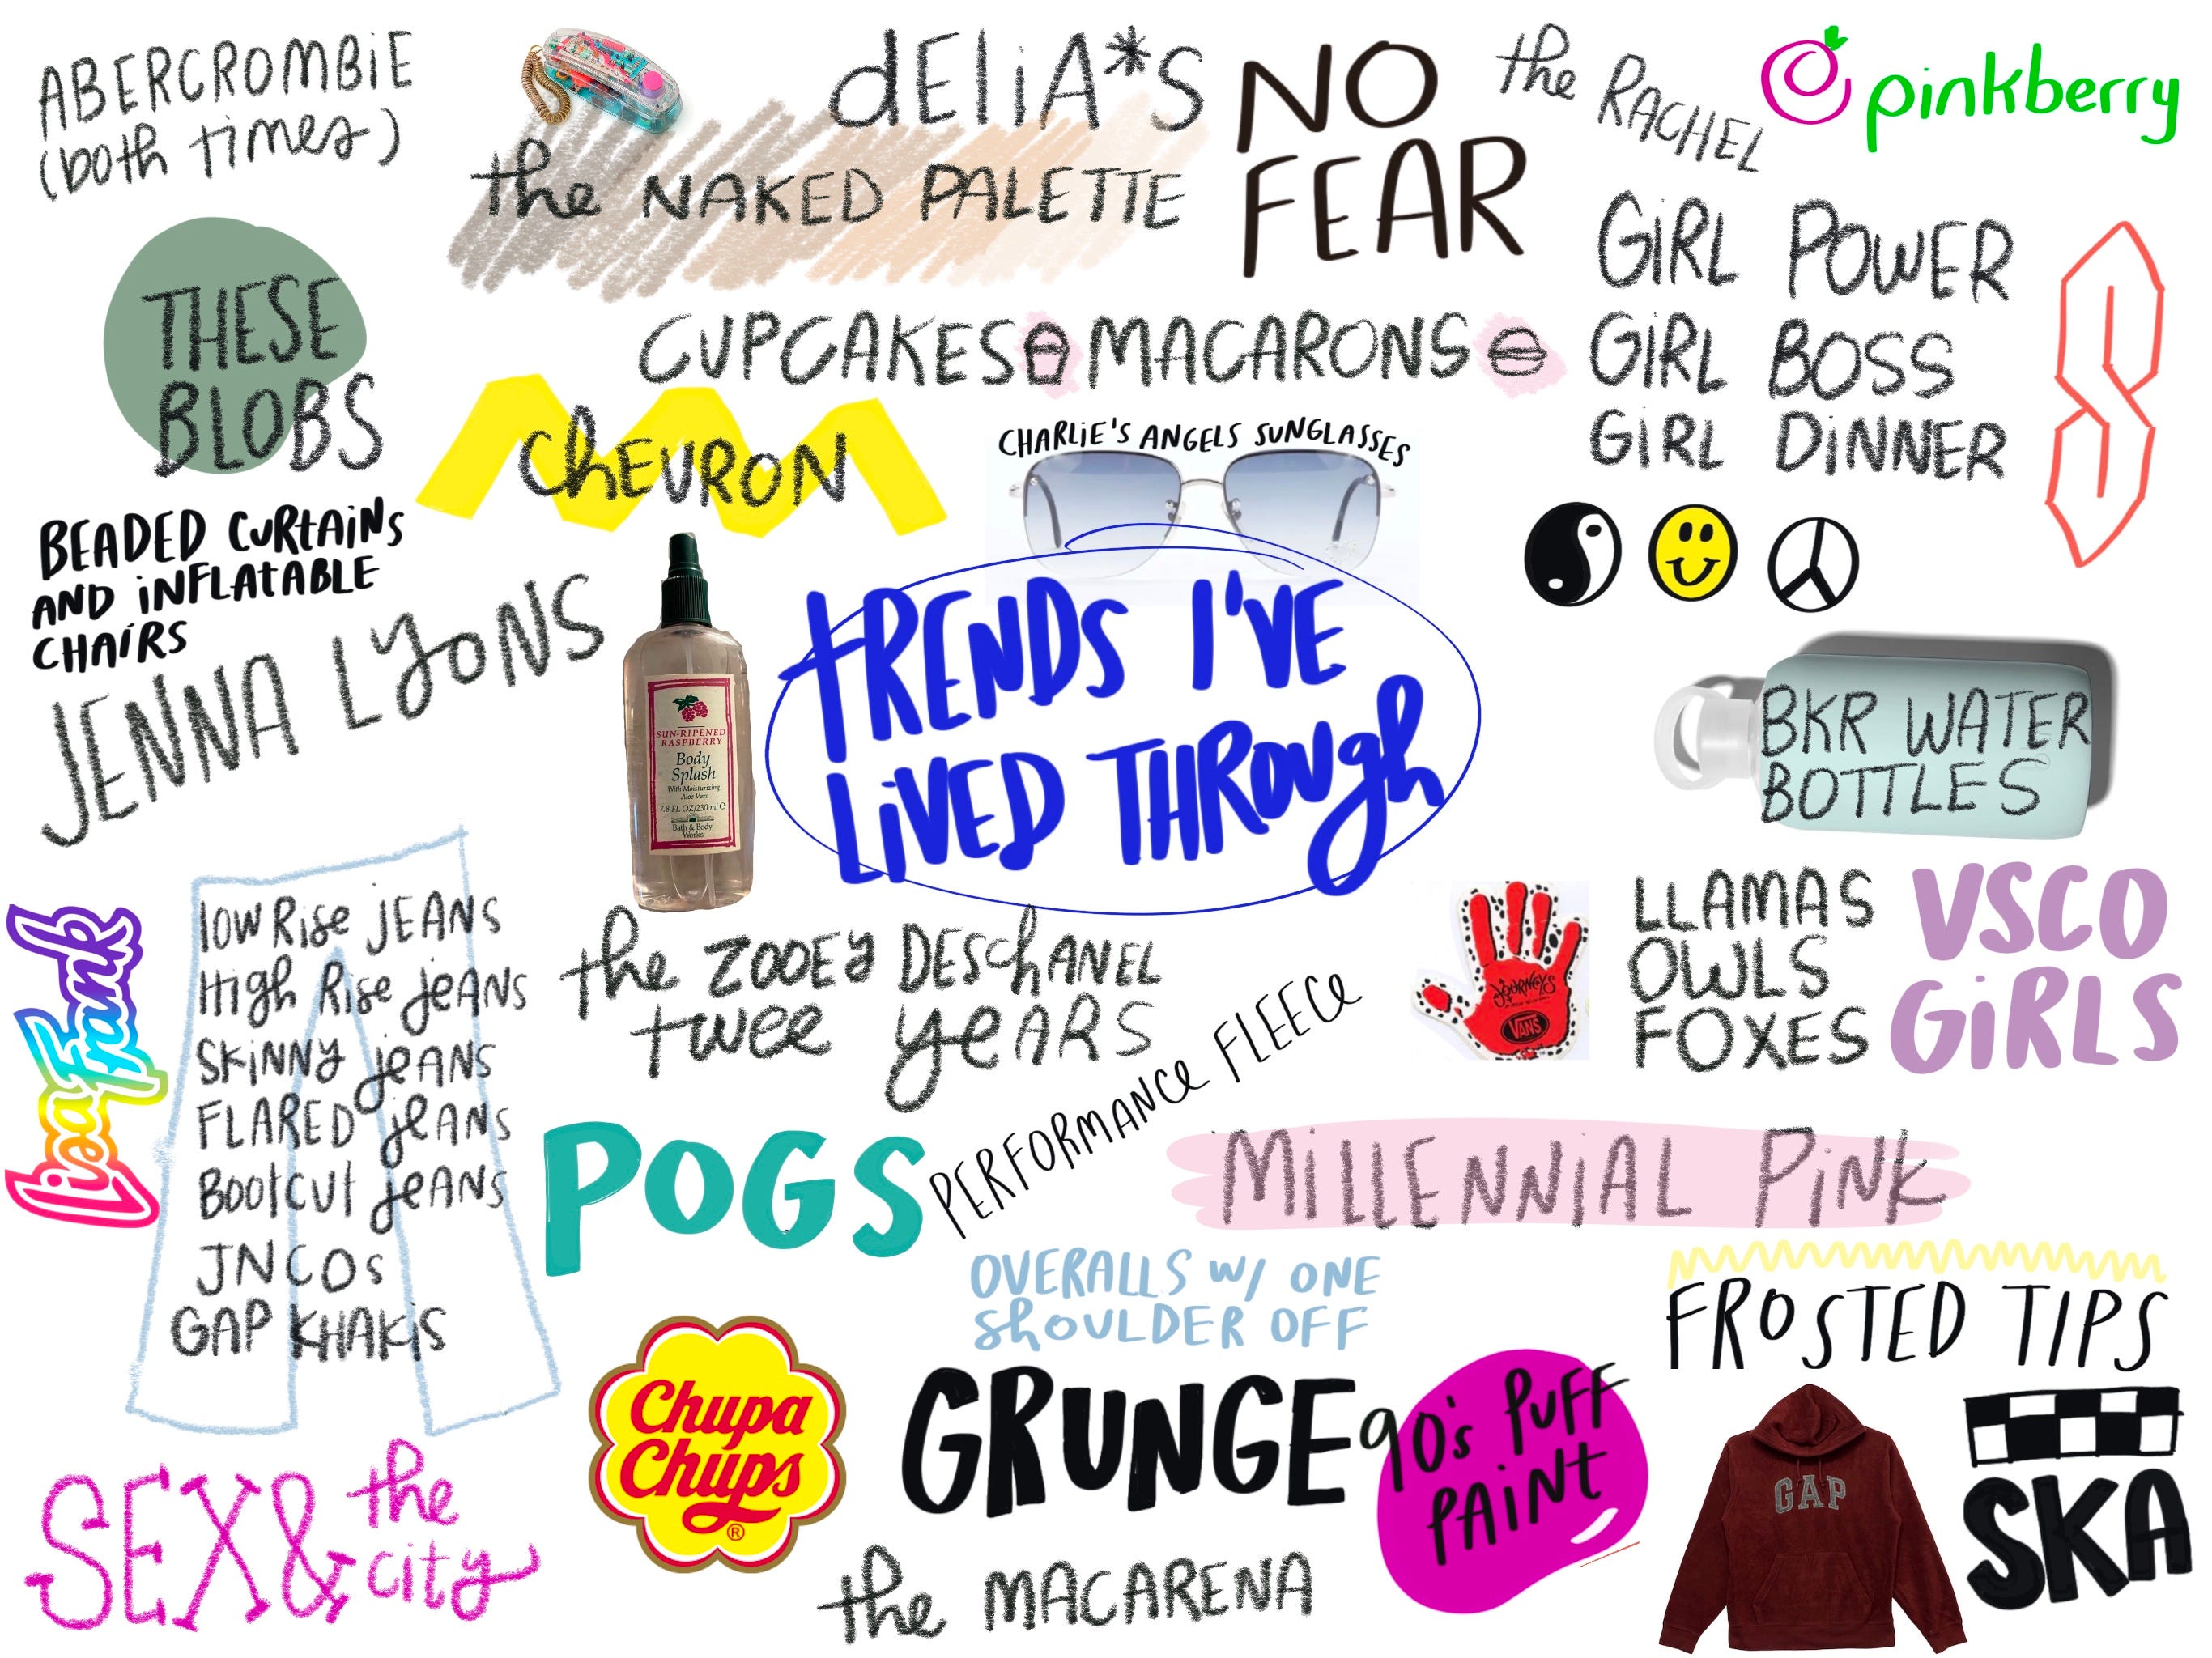 ABERCROMBIE
(both times)
dELiA*S
NO
FEAR
the RACHEL
pinkberry
the NAKED PALETTE
THESE
BLOBS
GIRL POWER
GIRL BOSS
GIRL DINNER
CUPCAKES MACARONS
CHEVRON
CHARLIE'S ANGELS SUNGLASSES
BEADED CURTAINS
AND INFLATABLE
CHAIRS
JENNA LYONS
SUN-RIPENED
RASPBERRY
Body
Splash
With Moisturizing
Aloe Vera
7.8 FL OZ/230 ml e
Bath & Body
Works
TRENDS I'VE
LIVED THROUGH
BKR WATER
BOTTLES
Lisa Frank
low Rise JEANS
High Rise jeANS
SKINNY jeANS
FLARED jeANS
Bootcut jeANS
JNCOs
GAP KHAKIS
the ZOOEY DESCHANEL
twee YEARS
JOURNEYS
VANS
LLAMAS
OWLS
FOXES
VSCO
GIRLS
POGS
PERFORMANCE FLEECE
MILLENNIAL PINK
OVERALLS W/ ONE
SHOULDER OFF
FROSTED TIPS
Chupa
Chups
®
GRUNGE
90's PUFF
PAINT
GAP
SKA
SEX & the
city
the MACARENA